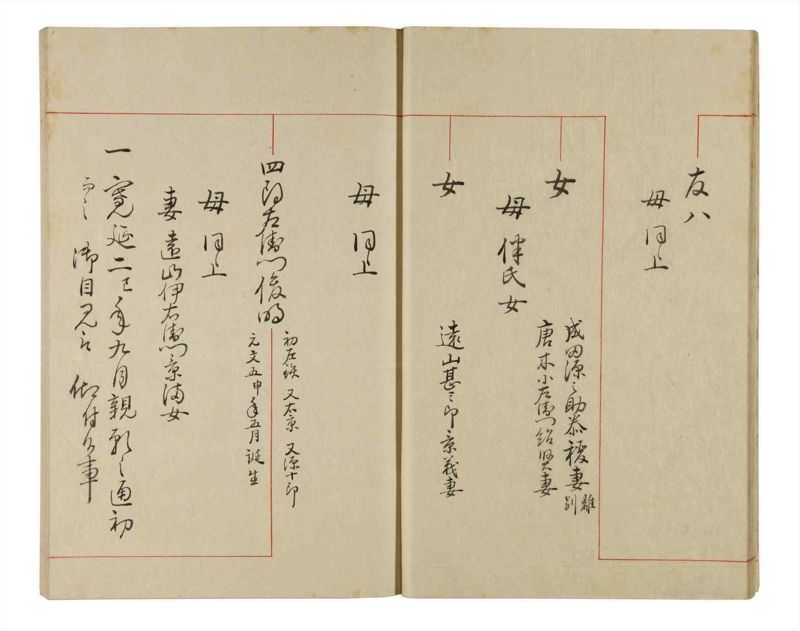 友八
母 同上
女
成田源之助恭稷妻 離別
唐木小左衛門詮賢妻
母 伴氏女
女
遠山甚三郎景義妻
母 同上
四郎左衛門俊明
初左鉄 又右京 又源十郎
元文五申年五月誕生
母 同上
妻 遠山伊右衛門景満女
一 寛延二巳年九月親願之通初
而之御目見被 仰付候事